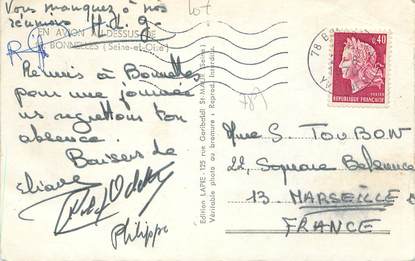 Vous manquez à nos
réunions H.L.G.
lot
EN AVION AU-DESSUS DE
BONNELLES (Seine-et-Oise)
Réunis à Bonnelles
pour une journée
ns regrettons ton
absence.
Baisers de
Eliane
Odette
Philippe
Edition LAPIE - 125 rue Garibaldi St-MAUR (Seine)
Véritable photo au bromure : Reprod. Interdite.
78
0,40
REPUBLIQUE FRANÇAISE
Mme S. TOUBON
22, Square
13. MARSEILLE
FRANCE